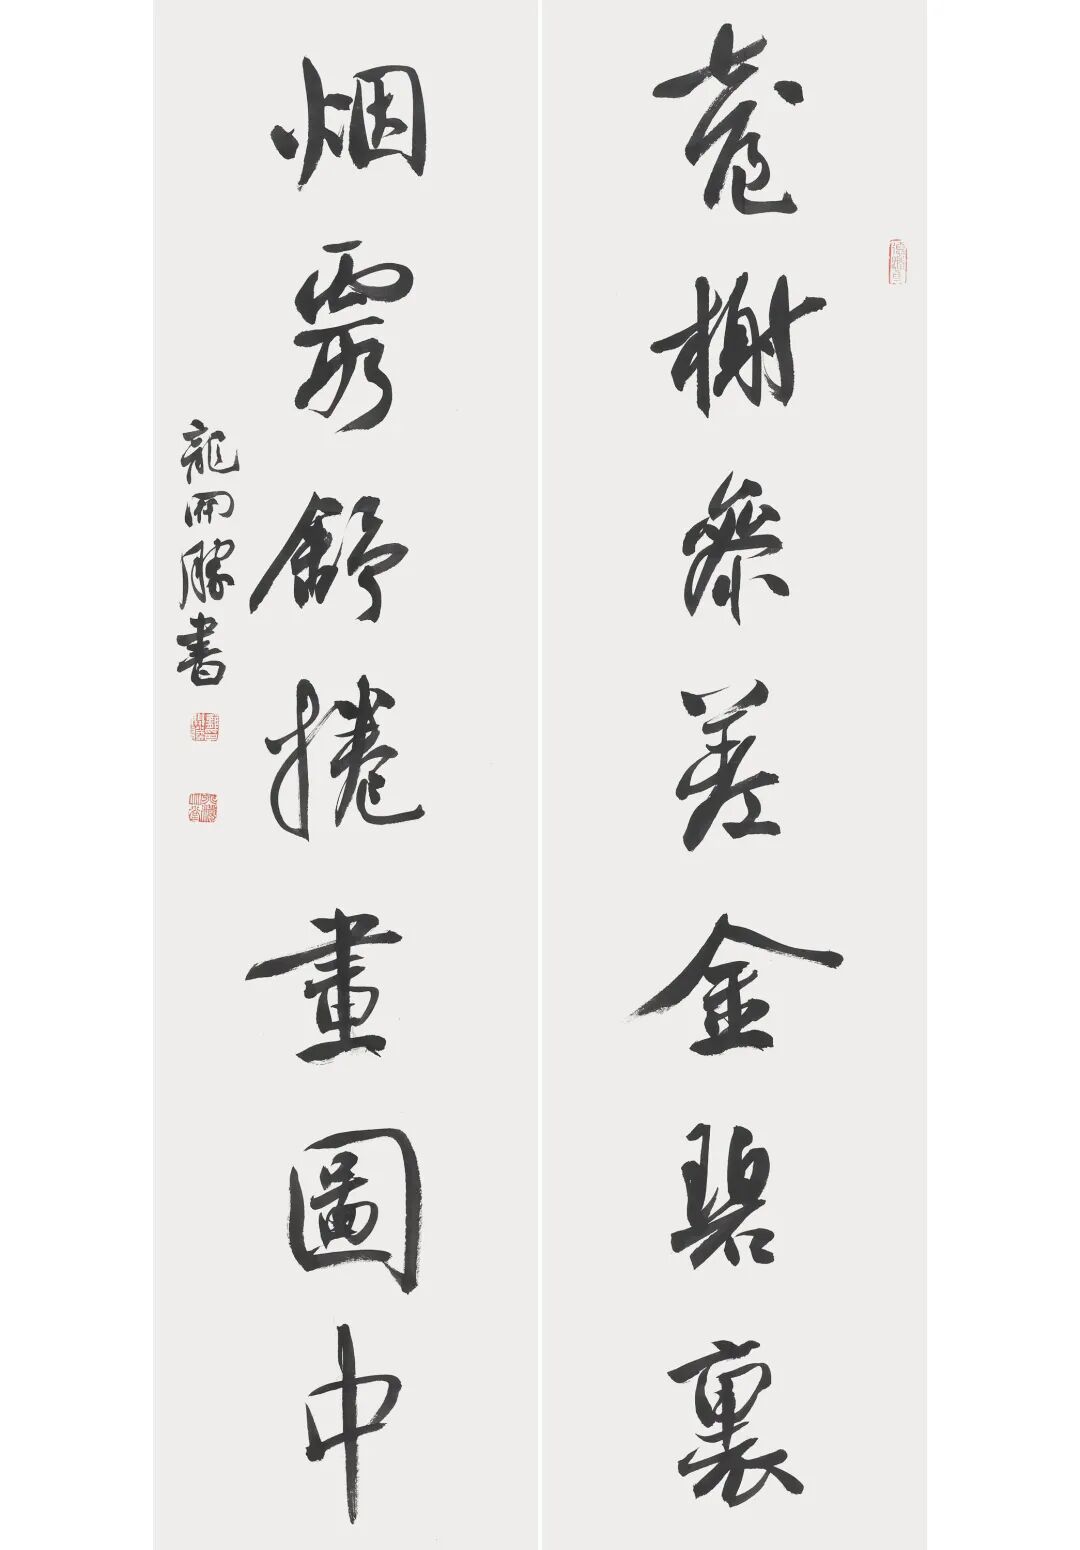 臺榭參差金碧裏
烟霞舒捲畫圖中
龍開勝書